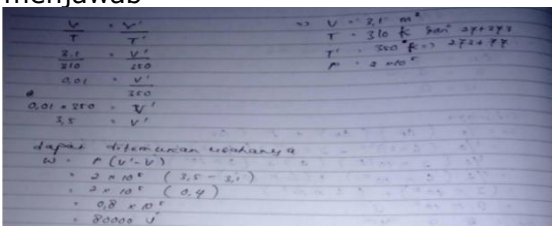 menjawab
V = V'
T T'
3,1 = V'
310 350
0,01 = V'
350
0,01 × 350 = V'
3,5 = V'
=> V = 3,1 m³
T = 310 K dari 37+273
T' = 350 K => 273+77
P = 2 × 10⁵
dapat ditemukan usahanya
W = P (V' - V)
= 2 × 10⁵ (3,5 - 3,1)
= 2 × 10⁵ (0,4)
= 0,8 × 10⁵
= 80000 J